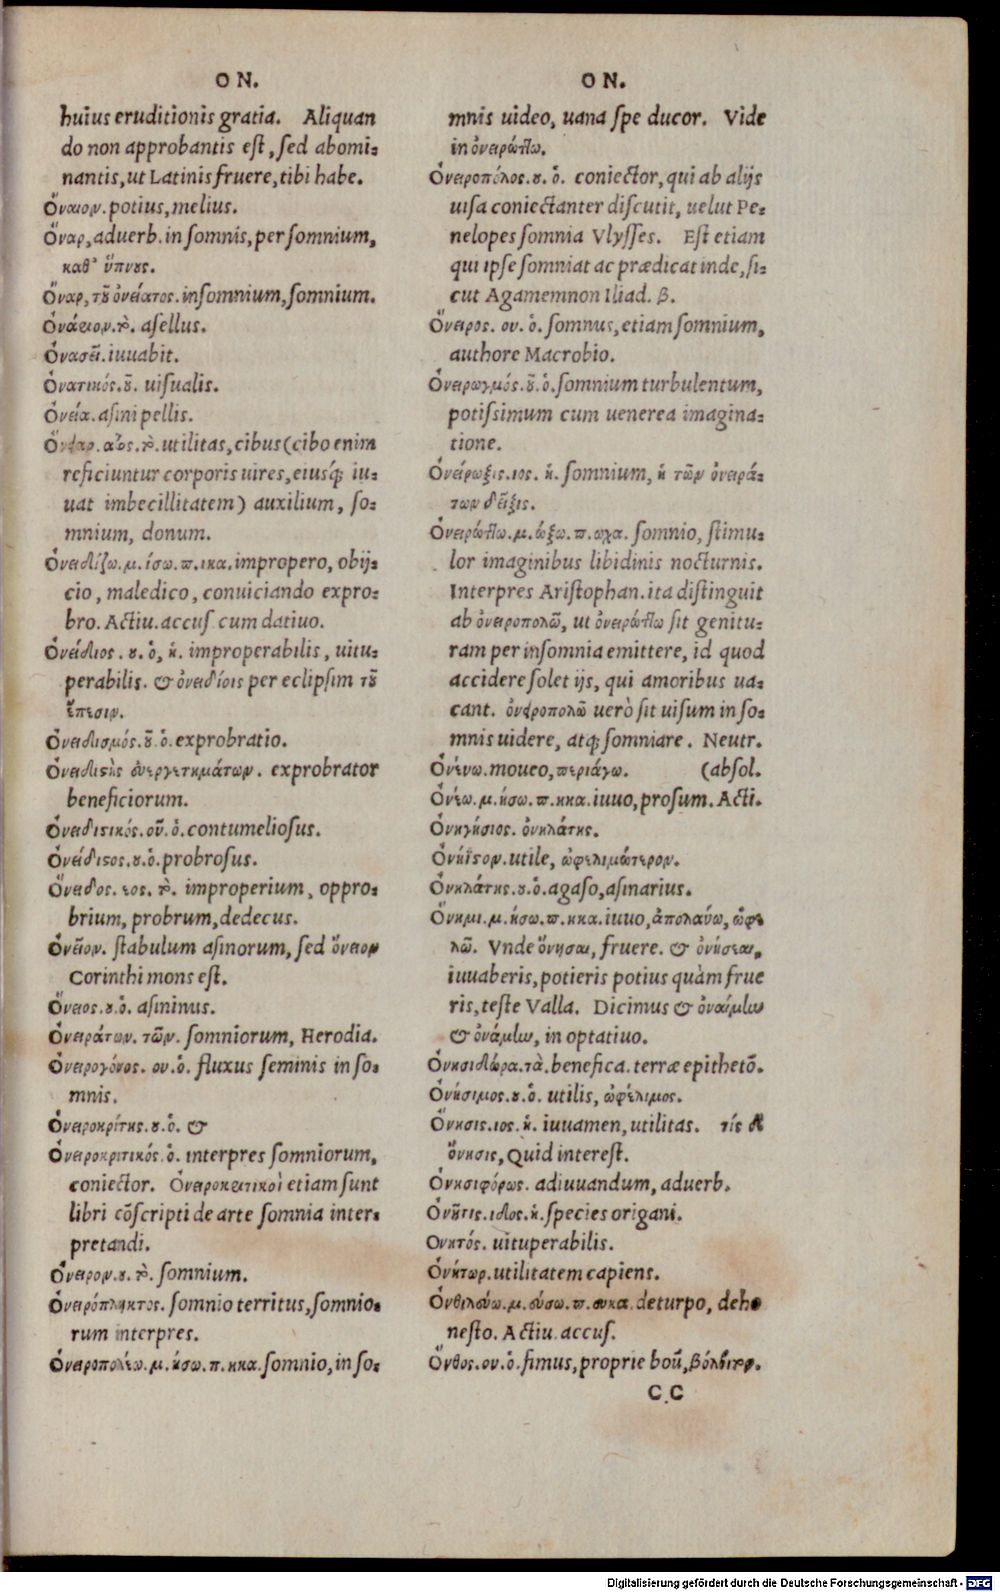 ON.
huius eruditionis gratia. Aliquan
do non approbantis est, sed abomi:
nantis, ut Latinis fruere, tibi habe.
Ὄναιον. potius, melius.
Ὄναρ, aduerb. in somnis, per somnium,
καθ' ὕπνους.
Ὄναρ, τοῦ ὀνείατος. insomnium, somnium.
Ὀνάριον. τὸ. asellus.
Ὀνασεῖ. iuuabit.
Ὀνατικός. οῦ. uisualis.
Ὀνεία. asini pellis.
Ὄνειαρ. ατος. τὸ. utilitas, cibus (cibo enim
reficiuntur corporis uires, eiusq́; iu:
uat imbecillitatem) auxilium, so:
mnium, donum.
Ὀνειδίζω. μ. ίσω. π. ικα. impropero, obij:
cio, maledico, conuiciando expro:
bro. Actiu. accus. cum datiuo.
Ὀνείδιος. ου. ὁ, ἡ. improperabilis, uitu:
perabilis. & ὀνειδίοις per eclipsim τοῦ
ἔπεσιν.
Ὀνειδισμός. οῦ. ὁ. exprobratio.
Ὀνειδιστὴς εὐεργετημάτων. exprobrator
beneficiorum.
Ὀνειδιστικός. οῦ. ὁ. contumeliosus.
Ὀνείδιστος. ου. ὁ. probrosus.
Ὄνειδος. εος. τὸ. improperium, oppro:
brium, probrum, dedecus.
Ὀνεῖον. stabulum asinorum, sed ὄνειον
Corinthi mons est.
Ὄνειος. ου. ὁ. asininus.
Ὀνειράτων. τῶν. somniorum, Herodia.
Ὀνειρογόνος. ου. ὁ. fluxus seminis in so:
mnis.
Ὀνειροκρίτης. ου. ὁ. &
Ὀνειροκριτικός. ὁ. interpres somniorum,
coniector. Ὀνειροκριτικοὶ etiam sunt
libri cõscripti de arte somnia inter:
pretandi.
Ὄνειρον. ου. τὸ. somnium.
Ὀνειρόπληκτος. somnio territus, somnio:
rum interpres.
Ὀνειροπολέω. μ. ήσω. π. ηκα. somnio, in so:
ON.
mnis uideo, uana spe ducor. Vide
in ὀνειρώττω.
Ὀνειροπόλος. ου. ὁ. coniector, qui ab alijs
uisa coniectanter discutit, uelut Pe:
nelopes somnia Vlysses. Est etiam
qui ipse somniat ac prædicat inde, si:
cut Agamemnon Iliad. β.
Ὄνειρος. ου. ὁ. somnus, etiam somnium,
authore Macrobio.
Ὀνειρωγμός. οῦ. ὁ. somnium turbulentum,
potissimum cum uenerea imagina:
tione.
Ὀνείρωξις. ιος. ἡ. somnium, ἡ τῶν ὀνειρά:
των δεῖξις.
Ὀνειρώττω. μ. ώξω. π. ωχα. somnio, stimu:
lor imaginibus libidinis nocturnis.
Interpres Aristophan. ita distinguit
ab ὀνειροπολῶ, ut ὀνειρώττω sit genitu:
ram per insomnia emittere, id quod
accidere solet ijs, qui amoribus ua:
cant. ὀνειροπολῶ uerò sit uisum in so:
mnis uidere, atq; somniare. Neutr.
Ὀνεύω. moueo, περιάγω. (absol.
Ὀνέω. μ. ήσω. π. ηκα. iuuo, prosum. Acti.
Ὀνηγήσιος. ὀνηλάτης.
Ὀνήϊστον. utile, ὠφελιμώτερον.
Ὀνηλάτης. ου. ὁ. agaso, asinarius.
Ὄνημι. μ. ήσω. π. ηκα. iuuo, ἀπολαύω, ὠφε
λῶ. Vnde ὄνησαι, fruere. & ὀνήσεαι,
iuuaberis, potieris potius quàm frue
ris, teste Valla. Dicimus & ὀναίμην
& ὀνάμην, in optatiuo.
Ὀνησιδώρα. τὰ. benefica. terræ epithetõ.
Ὀνήσιμος. ου. ὁ. utilis, ὠφέλιμος.
Ὄνησις. ιος. ἡ. iuuamen, utilitas. τίς δ'
ὄνησις, Quid interest.
Ὀνησιφόρως. adiuuandum, aduerb.
Ὀνῆτις. ιδος. ἡ. species origani.
Ονητός. uituperabilis.
Ὀνήτωρ. utilitatem capiens.
Ὀνθιλεύω. μ. εύσω. π. ευκα. deturpo, deho
nesto. Actiu. accus.
Ὄνθος. ου. ὁ. fimus, proprie boũ, βόλβιτον.
CC
Digitalisierung gefördert durch die Deutsche Forschungsgemeinschaft - DFG